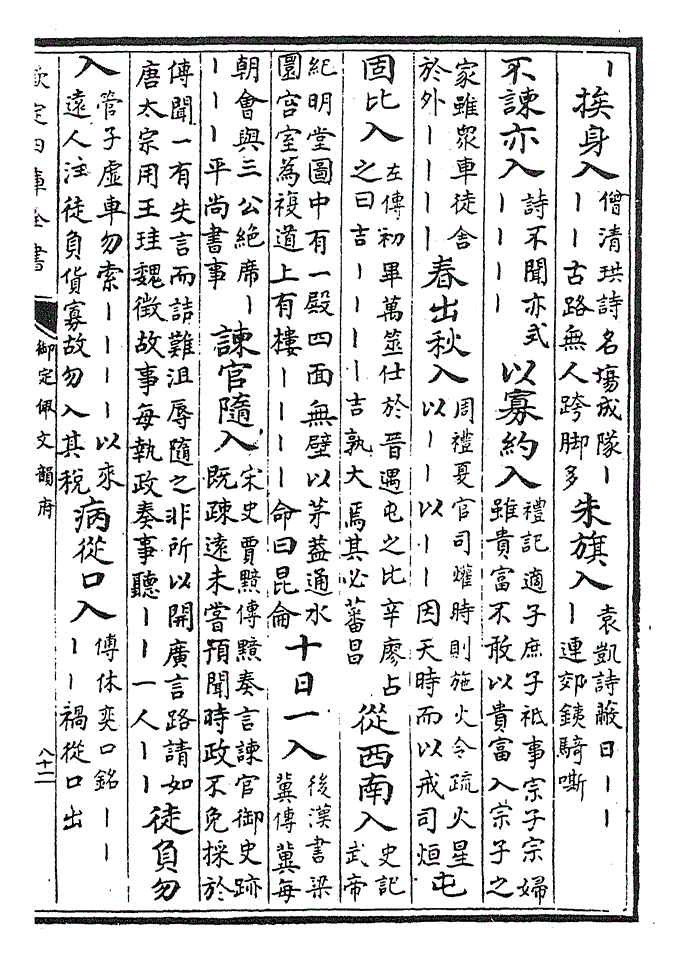 丨挨身入
僧清珙詩名塲成隊丨
丨丨古路無人跨脚多
朱旗入
袁凱詩蔽日丨丨
丨連郊銕騎嘶
不諫亦入
詩不聞亦式
丨丨丨丨
以寡約入
禮記適子庶子祗事宗子宗婦
雖貴富不敢以貴富入宗子之
家雖衆車徒舍
於外丨丨丨丨
春出秋入
周禮夏官司爟時則施火令疏火星
以丨丨以丨丨因天時而以戒司烜
屯
固比入
左傳初畢萬筮仕於晉遇屯之比辛廖占
之曰吉丨丨丨丨吉孰大焉其必蕃昌
從西南入
史記
武帝
紀明堂圖中有一殿四面無壁以茅葢通水
圜宫室為複道上有樓丨丨丨丨命曰昆侖
十日一入
後漢書梁
冀傳冀每
朝會與三公絶席丨
丨丨丨平尚書事
諫官隨入
宋史賈黯傳黯奏言諫官御史跡
既疎逺未嘗預聞時政不免採於
傳聞一有失言而詰難沮辱隨之非所以開廣言路請如
唐太宗用王珪魏徴故事每執政奏事聽丨丨一人丨丨
徒負勿
入
管子虚車勿索丨丨丨丨以來
逺人注徒負貨寡故勿入其税
病從口入
傅休奕口銘丨丨
丨丨禍從口出
欽定四庫全書
御定佩文韻府
八十二